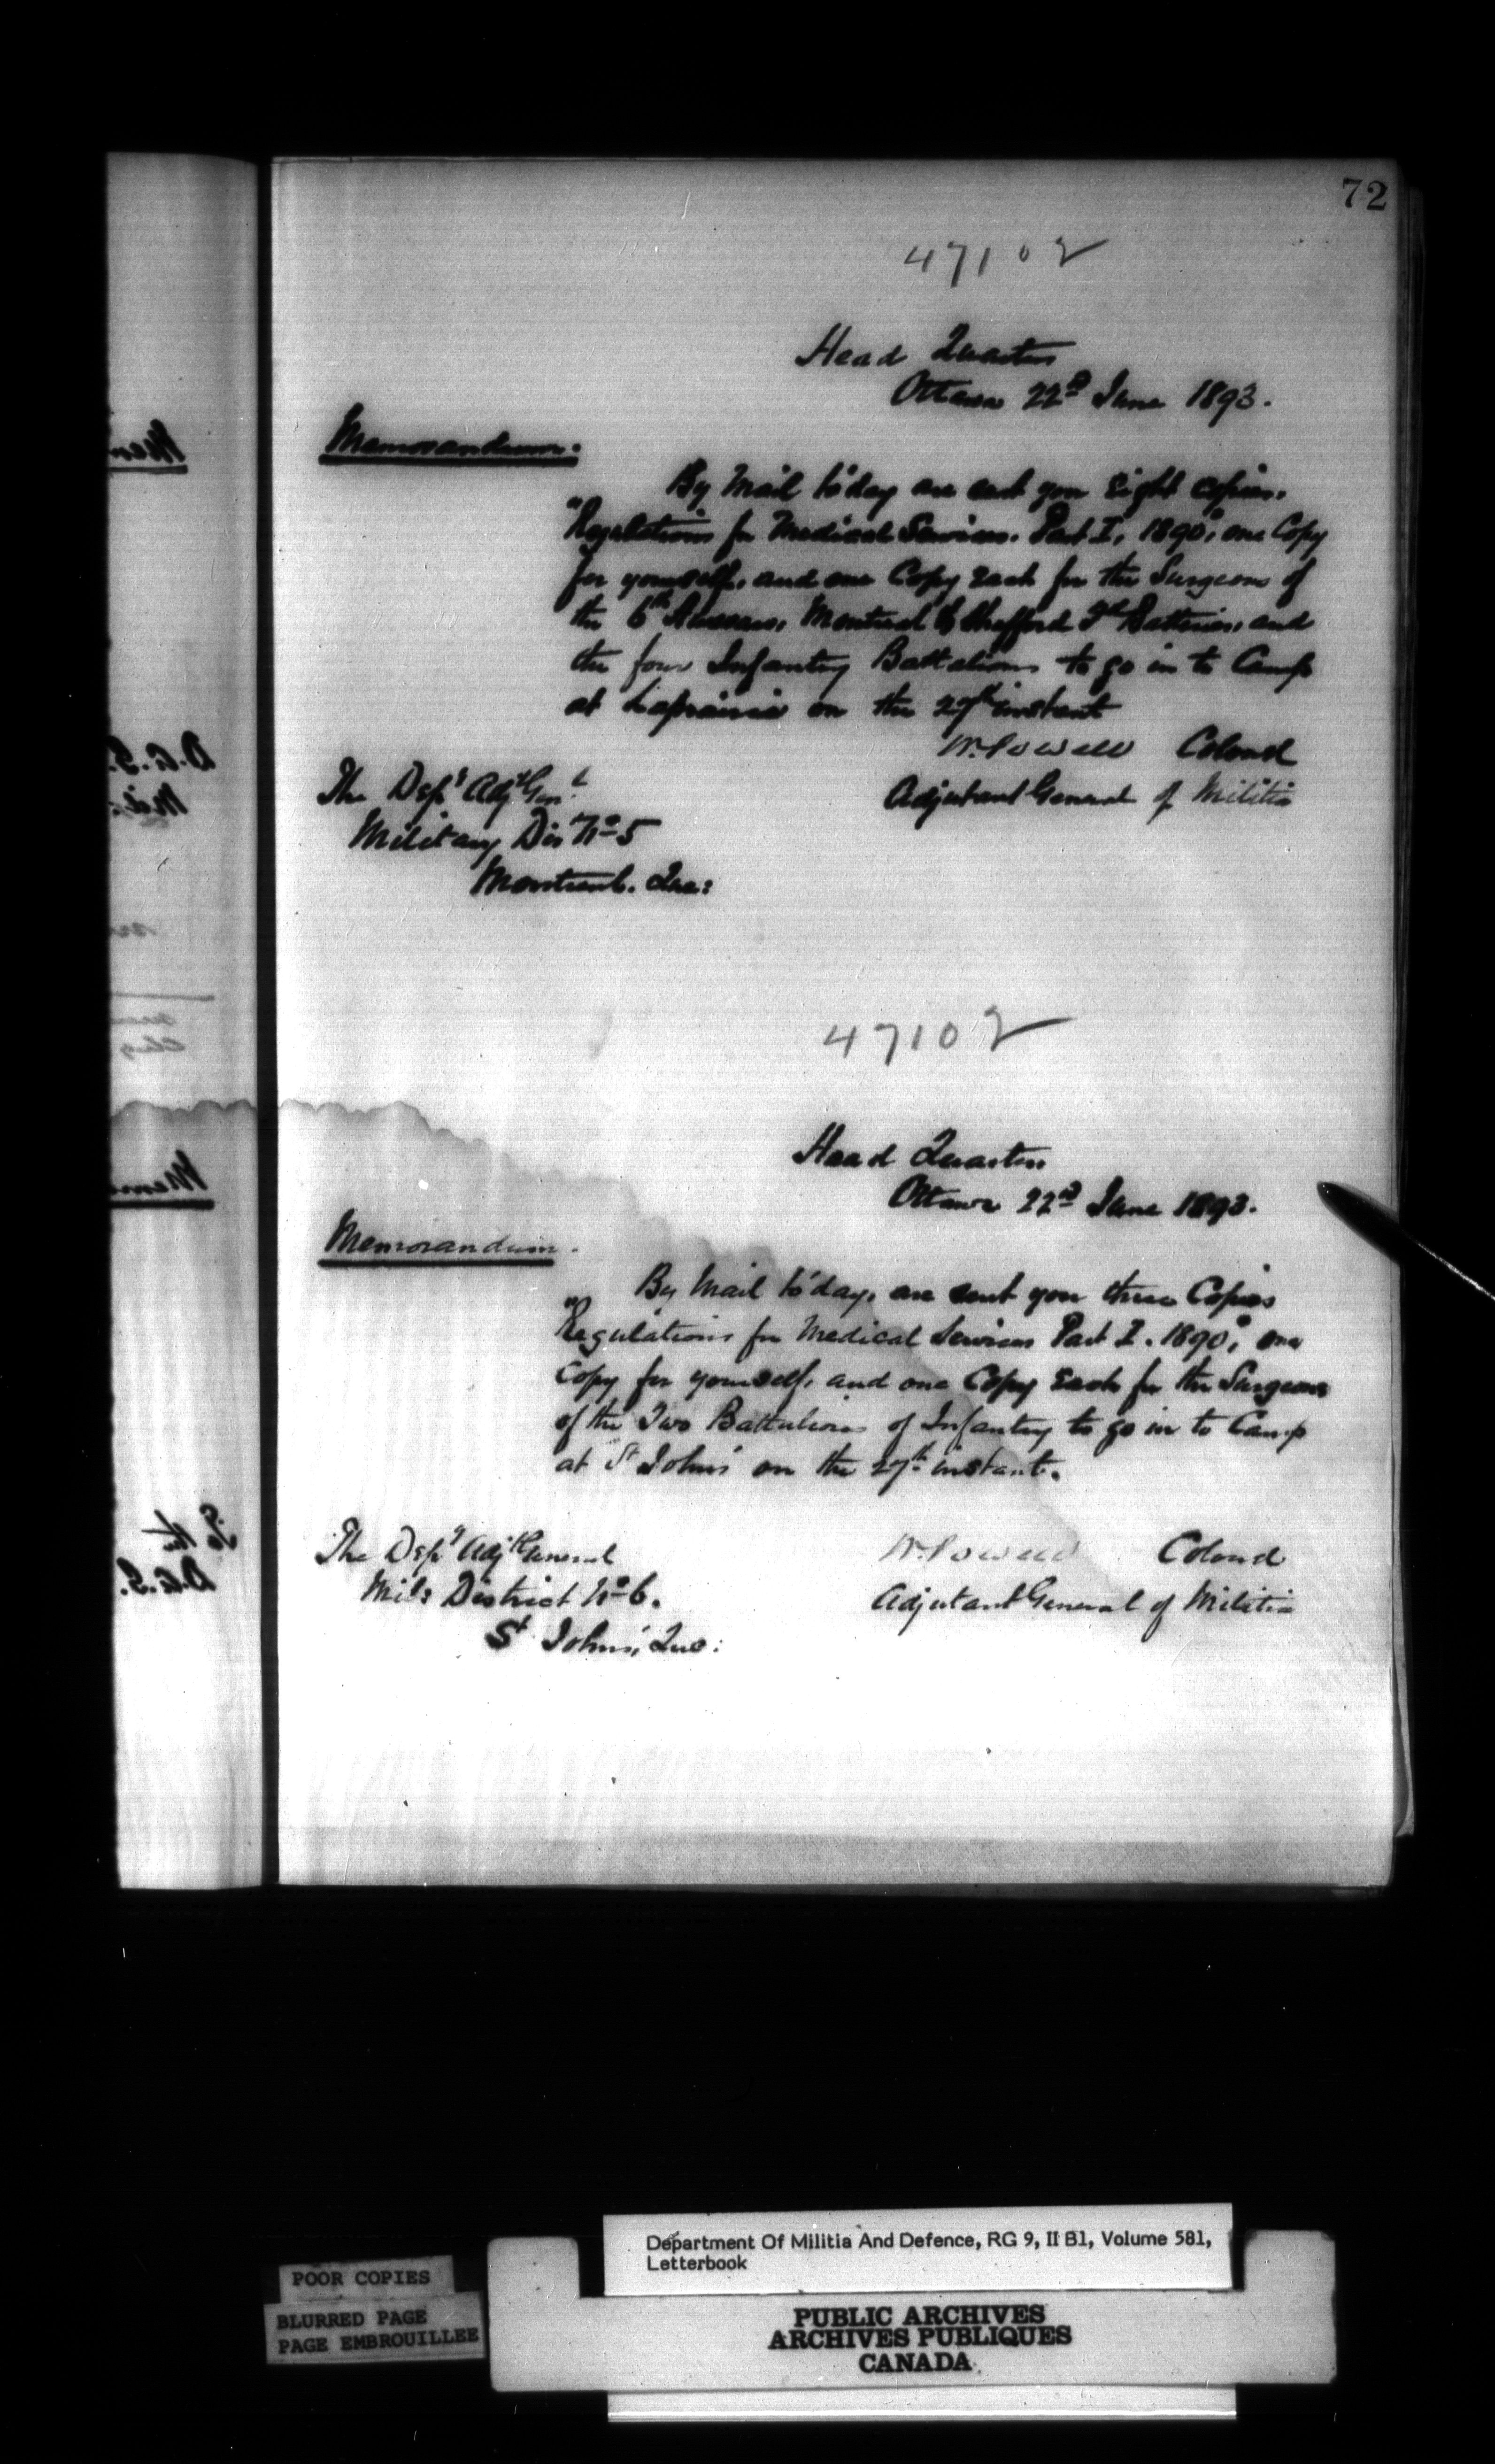 72
47102
Head Quarters
Ottawa 22nd June 1893.
Memorandum.
By Mail to'day are sent you Eight copies.
"Regulations for Medical Services. Part I, 1890", one Copy
for yourself, and one Copy Each for the Surgeons of
the 6th Hussars, Montreal & Shefford Fd Batteries, and
the four Infantry Battalions to go in to Camp
at Laprairie on the 27th instant
W. Powell Colonel
Adjutant General of Militia
The Depy Adjt Genl
Military Dis No 5
Montreal. Que:
47102
Head Quarters
Ottawa 22nd June 1893.
Memorandum.
By Mail to'day, are sent you three Copies
"Regulations for Medical Services Part I. 1890", one
Copy for yourself, and one Copy Each for the Surgeons
of the Two Battalions of Infantry to go in to Camp
at St Johns' on the 27th instant.
W. Powell Colonel
Adjutant General of Militia
The Depy Adjt General
Mil: District No 6.
St Johns', Que:
Department Of Militia And Defence, RG 9, II B1, Volume 581,
Letterbook
POOR COPIES
BLURRED PAGE
PAGE EMBROUILLEE
PUBLIC ARCHIVES
ARCHIVES PUBLIQUES
CANADA